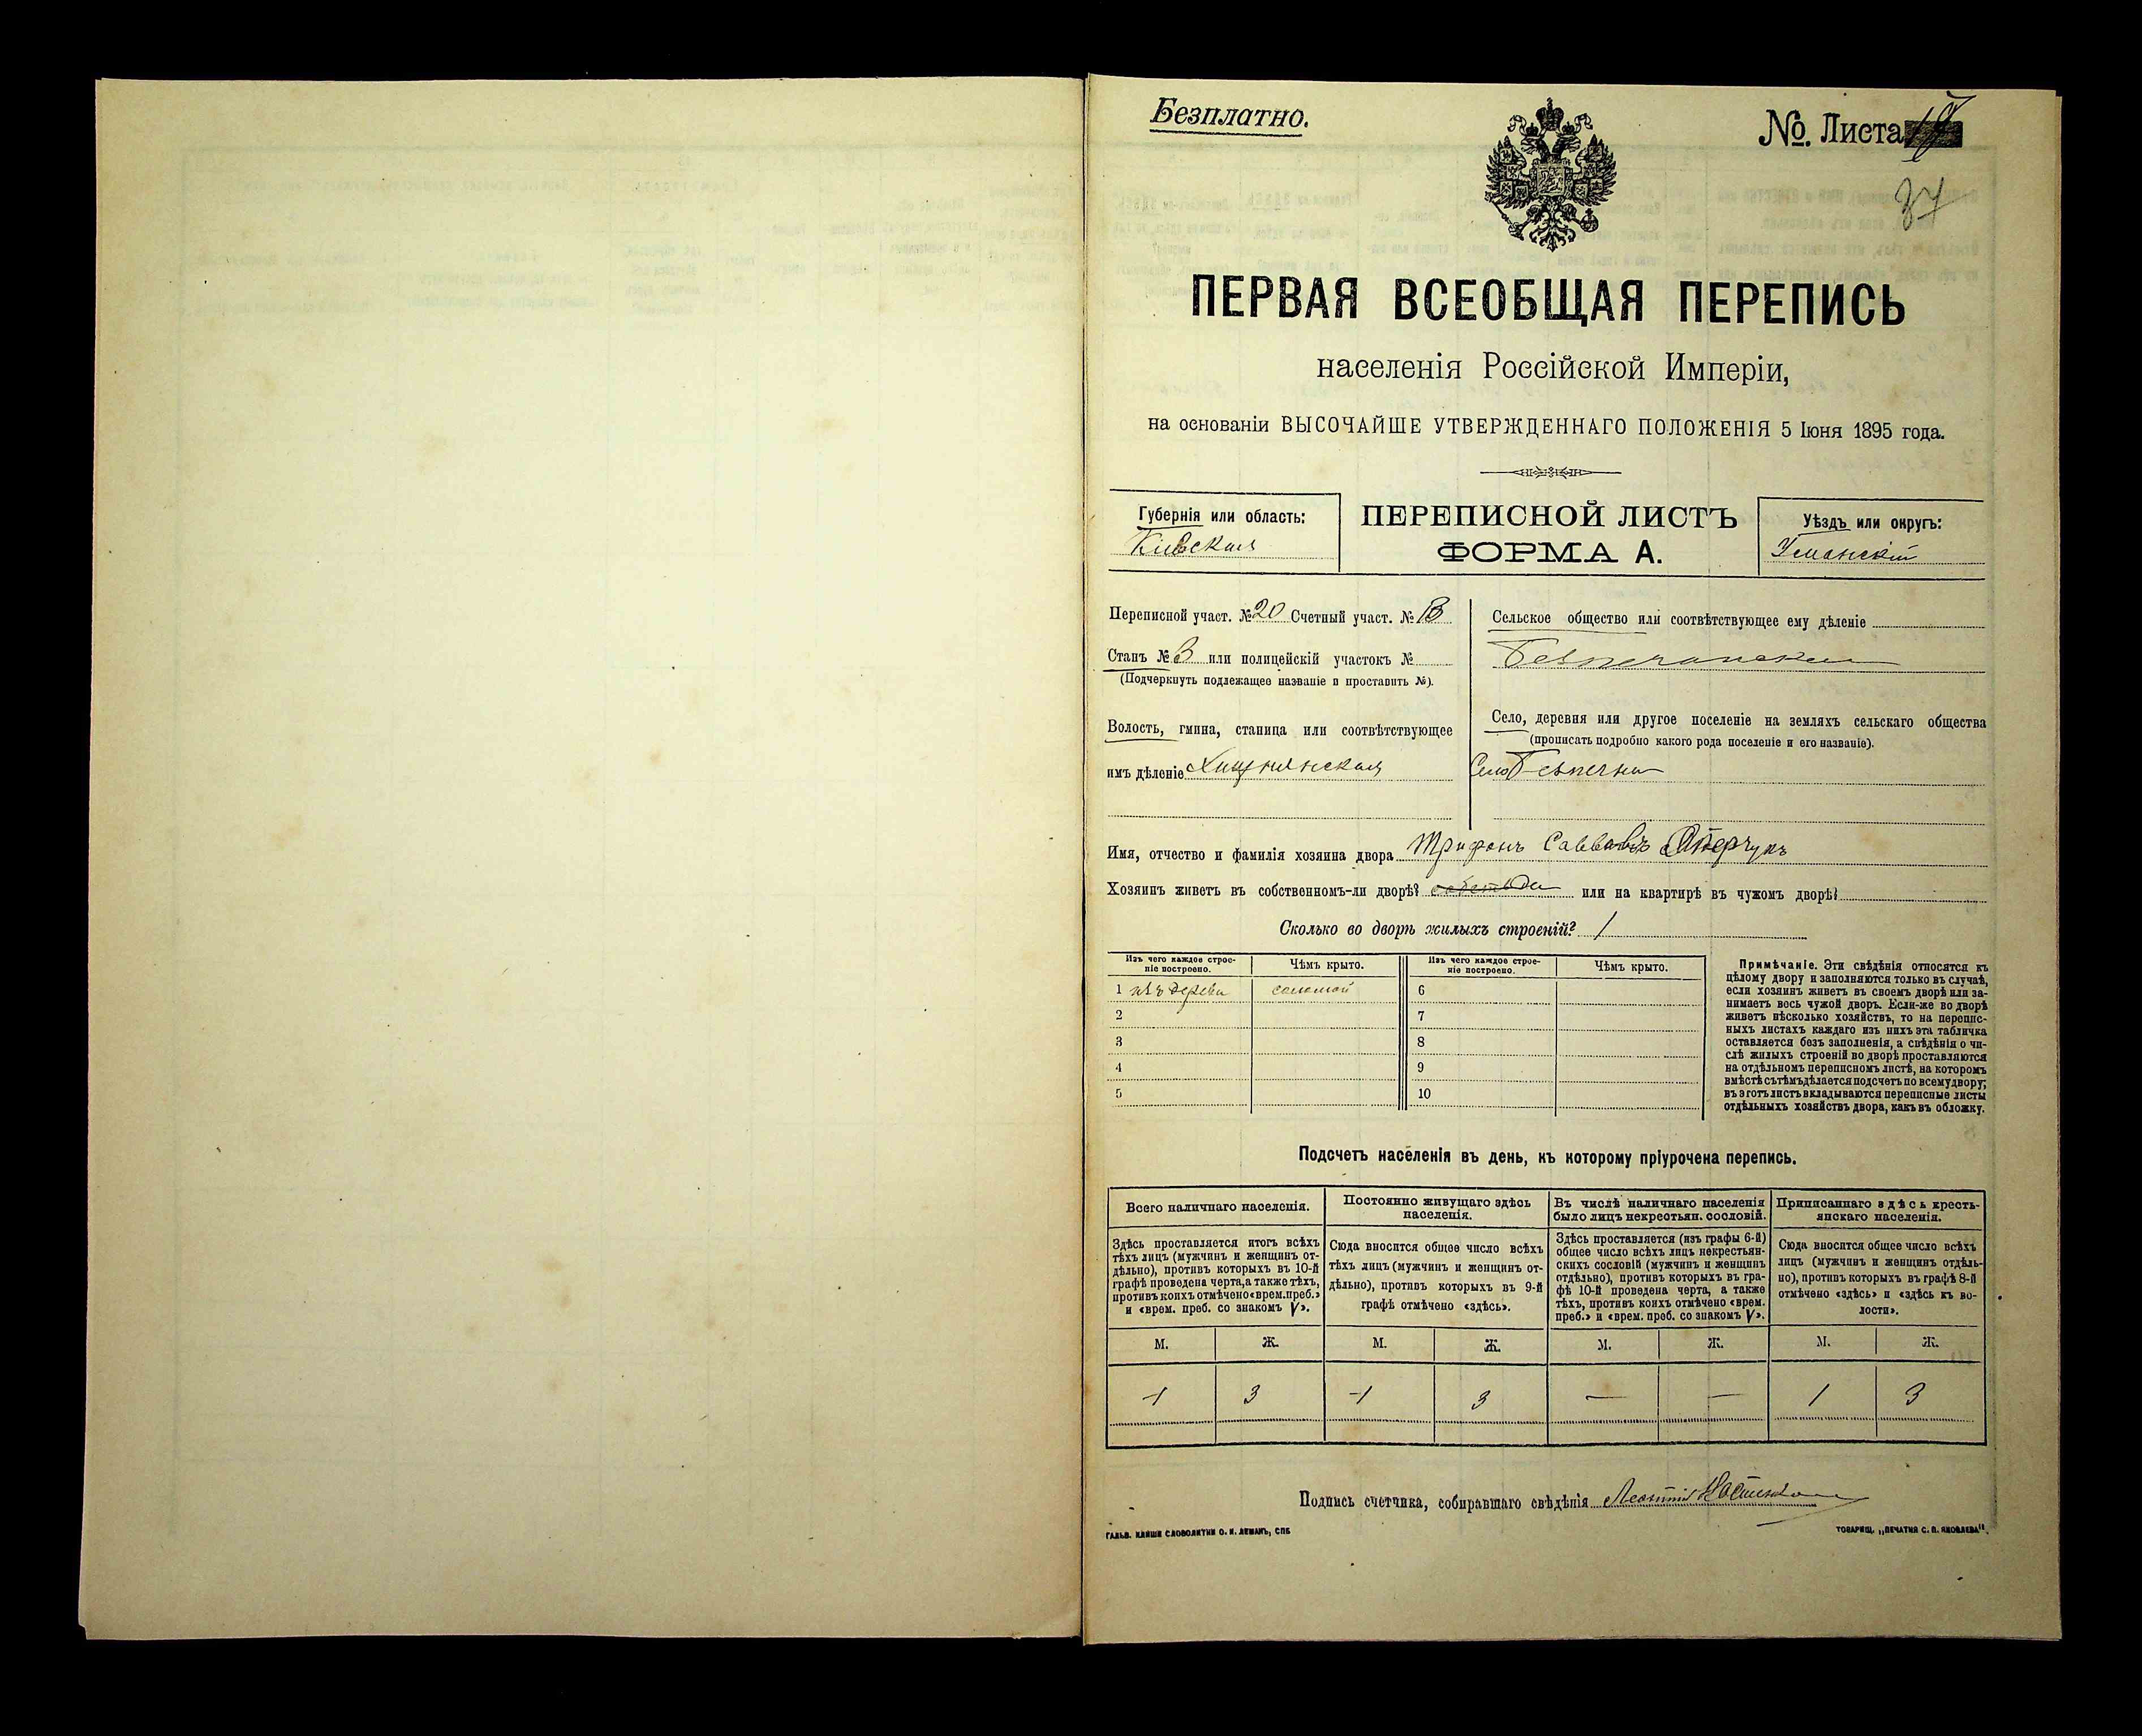 Безплатно.
№. Листа
37
ПЕРВАЯ ВСЕОБЩАЯ ПЕРЕПИСЬ
населенія Россійской Имперіи,
на основаніи ВЫСОЧАЙШЕ УТВЕРЖДЕННАГО ПОЛОЖЕНІЯ 5 Іюня 1895 года.
Губернія или область:
Кіевская
ПЕРЕПИСНОЙ ЛИСТЪ
ФОРМА А.
Уѣздъ или округъ:
Уманскій
Переписной участ. № 20 Счетный участ. №
Станъ № 3 или полицейскій участокъ №
(Подчеркнуть подлежащее названіе и проставить №).
Волость, гмина, станица или соотвѣтствующее
имъ дѣленіе
Сельское общество или соотвѣтствующее ему дѣленіе
Село, деревня или другое поселеніе на земляхъ сельскаго общества
(прописать подробно какого рода поселеніе и его названіе).
Село
Имя, отчество и фамилія хозяина двора Трифонъ
Хозяинъ живетъ въ собственномъ-ли дворѣ? или на квартирѣ въ чужомъ дворѣ?
Сколько во дворѣ жилыхъ строеній? 1
Изъ чего каждое строе-
ніе построено.
Чѣмъ крыто.
Изъ чего каждое строе-
ніе построено.
Чѣмъ крыто.
1 изъ дерева соломой 6
2 7
3 8
4 9
5 10
Примѣчаніе. Эти свѣдѣнія относятся къ
цѣлому двору и заполняются только въ случаѣ,
если хозяинъ живетъ въ своемъ дворѣ или за-
нимаетъ весь чужой дворъ. Если-же во дворѣ
живетъ нѣсколько хозяйствъ, то на перепис-
ныхъ листахъ каждаго изъ нихъ эта табличка
оставляется безъ заполненія, а свѣдѣнія о чи-
слѣ жилыхъ строеній во дворѣ проставляются
на отдѣльномъ переписномъ листѣ, на которомъ
вмѣстѣ съ тѣмъ дѣлается подсчетъ по всему двору;
въ этотъ листъ вкладываются переписные листы
отдѣльныхъ хозяйствъ двора, какъ въ обложку.
Подсчетъ населенія въ день, къ которому пріурочена перепись.
Всего наличнаго населенія.
Постоянно живущаго здѣсь
населенія.
Въ числѣ наличнаго населенія
было лицъ некрестьян. сословій.
Приписаннаго здѣсь кресть-
янскаго населенія.
Здѣсь проставляется итогъ всѣхъ
тѣхъ лицъ (мужчинъ и женщинъ от-
дѣльно), противъ которыхъ въ 10-й
графѣ проведена черта, а также тѣхъ,
противъ коихъ отмѣчено «врем. преб.»
и «врем. преб. со знакомъ V».
Сюда вносится общее число всѣхъ
тѣхъ лицъ (мужчинъ и женщинъ от-
дѣльно), противъ которыхъ въ 9-й
графѣ отмѣчено «здѣсь».
Здѣсь проставляется (изъ графы 6-й)
общее число всѣхъ лицъ некрестьян-
скихъ сословій (мужчинъ и женщинъ
отдѣльно), противъ которыхъ въ гра-
фѣ 10-й проведена черта, а также
тѣхъ, противъ коихъ отмѣчено «врем.
преб.» и «врем. преб. со знакомъ V».
Сюда вносится общее число всѣхъ
лицъ (мужчинъ и женщинъ отдѣль-
но), противъ которыхъ въ графѣ 8-й
отмѣчено «здѣсь» и «здѣсь къ во-
лости».
М. Ж. М. Ж. М. Ж. М. Ж.
1 3 1 3 — — 1 3
Подпись счетчика, собиравшаго свѣдѣнія
ГАЛЬВ. КЛИШЕ СЛОВОЛИТНИ О. И. ЛЕМАНЪ, СПБ
ТОВАРИЩ. „ПЕЧАТНЯ С. П. ЯКОВЛЕВА".